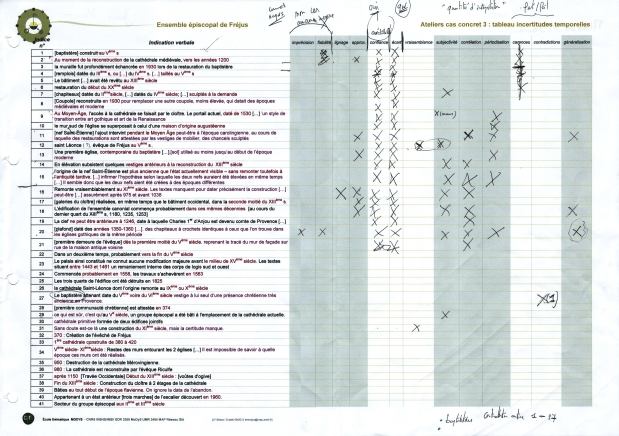 Ensemble épiscopal de Fréjus
Ateliers cas concret 3 : tableau incertitudes temporelles
n°
Indication verbale
imprécision fiabilité lignage approx. confiance vraisemblance subjectivité corrélation périodisation carences contradictions généralisation
1 [baptistère] construit au Vème s
2 Au moment de la reconstruction de la cathédrale médiévale, vers les années 1200
3 la muraille fut profondément échancrée en 1930 lors de la restauration du baptistère
4 [remplois] datés du IIème s. ou [...] du IVème s. [...] taillés au Vème s
5 Le bâtiment [...] avait été revêtu au XIIIème siècle
6 restauration du début du XXème siècle
7 [chapiteaux] datés du IIème siècle, [...] datés du IVème siècle; [...] sculptés à la demande
8 [Coupole] reconstruite en 1930 pour remplacer une autre coupole, moins élevée, qui datait des époques médiévales et moderne
9 Au Moyen-Âge, l'accès à la cathédrale se faisait par le cloître. Le portail actuel, daté de 1530 [...] un style de transition entre art gothique et art de la Renaissance
10 le mur sud de l'église se superposait à celui d'une maison d'origine augustéenne
11 [nef Saint-Étienne] l'ajout intervint pendant le Moyen Âge peut-être à l'époque carolingienne, au cours de laquelle des restaurations sont attestées par les vestiges de mobilier, des chancels sculptés
12 saint Léonce ( ?), évêque de Fréjus au Vème s.
13 une première église, contemporaine du baptistère [...] [sol] utilisé au moins jusqu'au début de l'époque moderne
14 En élévation subsistent quelques vestiges antérieurs à la reconstruction du XIIIème siècle
15 l'origine de la nef Saint-Étienne est plus ancienne que l'état actuellement visible – sans remonter toutefois à l'antiquité tardive. [...] infirmer l'hypothèse selon laquelle les deux nefs auraient été élevées en même temps [...] Il semble donc que les deux nefs aient été créées à des époques différentes
16 Remonte vraisemblablement au XIème siècle. Les textes manquent pour dater précisément la construction [...] peut-être [...] assurément après 975 et avant 1038
17 [galeries du cloître] réalisées, en même temps que le bâtiment occidental, dans la seconde moitié du XIIIème s.
18 L'édification de l'ensemble canonial commença probablement dans ces mêmes décennies. [au cours du dernier quart du XIIème s, 1180, 1235, 1253]
19 La clef ne peut être antérieure à 1246, date à laquelle Charles 1er d'Anjou est devenu comte de Provence [...]
20 [plafond] daté des années 1350-1360 [...] des chapiteaux à crochets identiques à ceux que l'on trouve dans les églises gothiques de la même période
21 [première demeure de l'évêque] dès la première moitié du Vème siècle, reprenant le tracé du mur de façade sur rue de la maison antique voisine
22 Dans un deuxième temps, probablement vers la fin du Vème siècle
23 Le palais ainsi constitué ne connut aucune modification majeure avant le milieu de XVème siècle. Les textes situent entre 1443 et 1461 un remaniement interne des corps de logis sud et ouest
24 Commencés probablement en 1558, les travaux s'achevèrent en 1563
25 Les trois quarts de l'édifice ont été détruits en 1825
26 la cathédrale Saint-Léonce dont l'origine remonte au IXème ou XIème siècle
27 Le baptistère attenant date du Vème voire du VIème siècle vestige à lui seul d'une première chrétienne très ancienne en Provence.
28 [première communauté chrétienne] est attestée en 374
29 ce qui est sûr, c'est qu'au Vème siècle, un groupe épiscopal a été bâti à l'emplacement de la cathédrale actuelle.
30 cathédrale primitive formée de deux édifices jointifs
31 Sans doute est-ce là une construction du XIème siècle, mais la certitude manque.
32 370 : Création de l'évêché de Fréjus
33 1ère cathédrale construite de 360 à 420
34 Vème siècle- XIème siècle : Restes des murs entourant les 2 églises [...] Il est impossible de savoir à quelle époque ces murs ont été réalisés.
35 950 : Destruction de la cathédrale Mérovingienne.
36 980 : La cathédrale est reconstruite par l'évêque Riculfe
37 après 1150 [Travée Occidentale] Début XIIIème siècle : [voûtes d'ogive]
38 Fin du XIIIème siècle : Construction du cloître à 2 étages de la cathédrale
39 Bâties au tout début de l'époque flavienne. On ignore la date de l'abandon.
40 Appartenant à un état antérieur [trois marches de l'escalier découvert en 1980.
41 Secteur du groupe épiscopal aux IIème et IIIème siècle